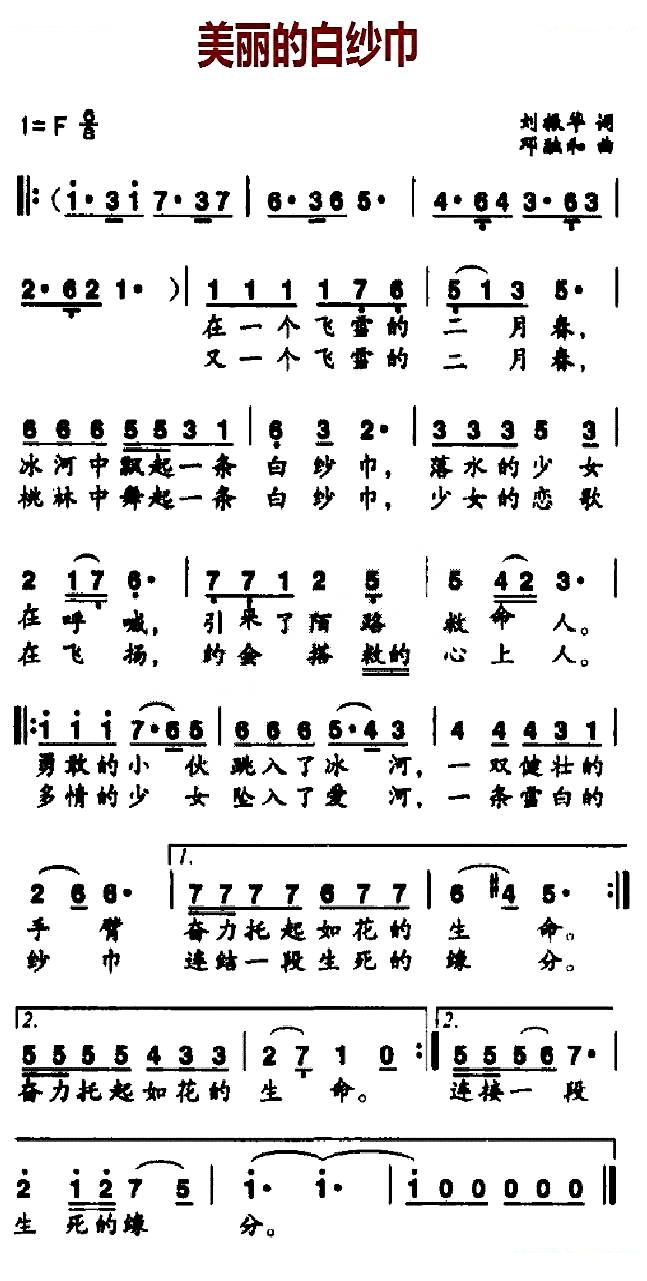 美丽的白纱巾
1=F 6/8
刘振华 词
邓融和 曲
‖:(i·3i 7·37 | 6·36 5· | 4·64 3·63 |
2·62 1· )| 1 1 1 1 7 6 | 5 1 3 5· |
在一个飞雪的 二 月春,
又一个飞雪的 二 月春,
6 6 6 5 5 3 1 | 6 3 2· | 3 3 3 5 3
冰河中飘起一条 白 纱 巾, 落水的少女
桃林中舞起一条 白 纱 巾, 少女的恋歌
2 1 7 6· | 7 7 1 2 5 | 5 4 2 3· |
在 呼 喊, 引来了陌 路 救 命 人。
在 飞 扬, 约会 搭 救的 心 上 人。
‖: i i i 7·6 5 | 6 6 6 5·4 3 | 4 4 4 3 1 |
勇敢的小 伙 跳入了冰 河, 一 双健壮的
多情的少 女 坠入了爱 河, 一 条雪白的
1.
2 6 6· | 7 7 7 7 6 7 7 | 6 #4 5· :‖
手 臂 奋力托起如花的 生 命。
纱 巾 连结一段生死的 缘 分。
2. 2.
5 5 5 5 4 3 3 | 2 7 1 0 :‖ 5 5 5 6 7· |
奋力托起如花的 生 命。 连接一 段
2 i 2 7 5 | i· i· | i 0 0 0 0 0 ‖
生 死的缘 分。